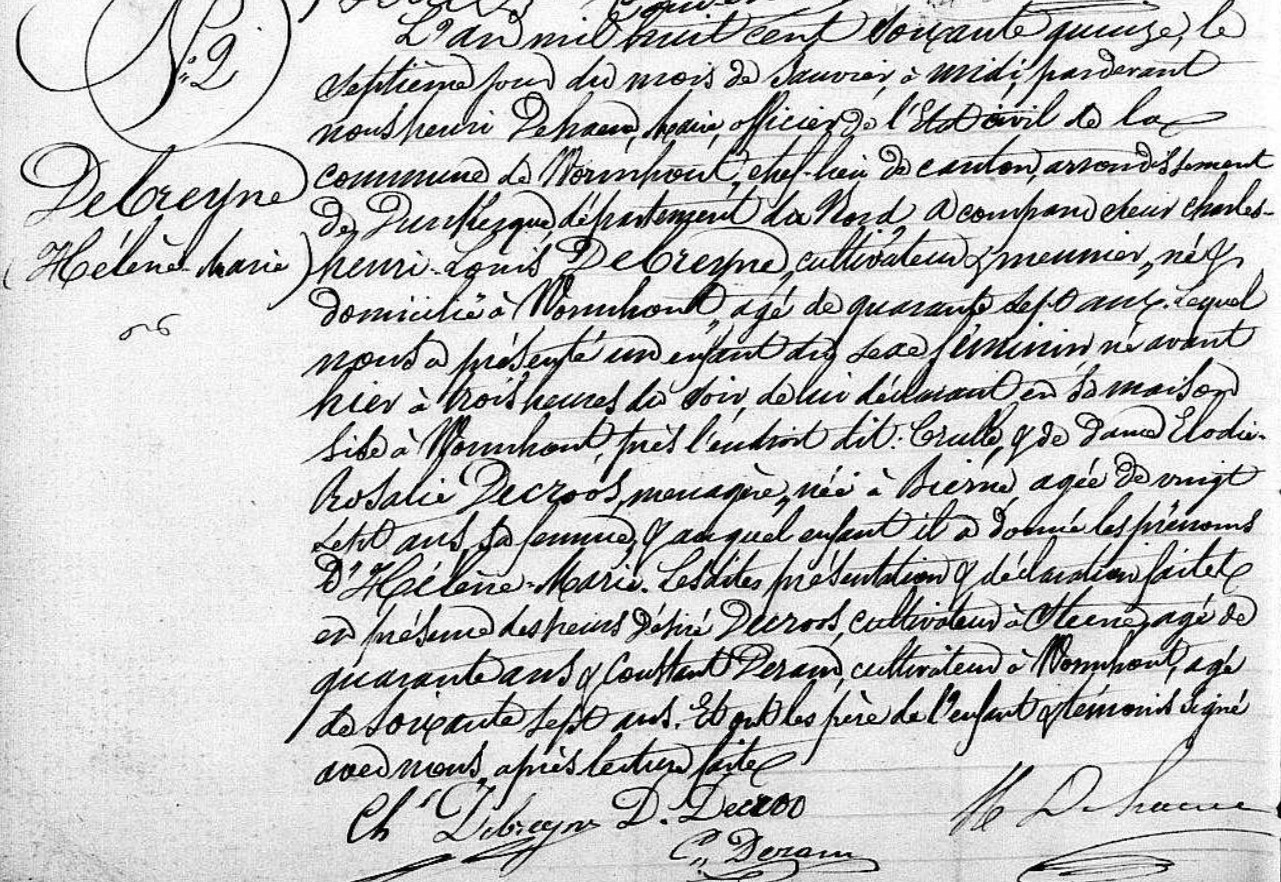 N° 2
Debreyne
(Hélène-Marie)
L'an mil huit cent soixante quinze, le
septième jour du mois de Janvier, à midi, pardevant
nous henri Dehaene, Maire, officier de l'Etat civil de la
commune de Wormhout, chef-lieu de canton, arrondissement
de Dunkerque, département du Nord, a comparu sieur Charles-
henri-Louis Debreyne, cultivateur & meunier, né &
domicilié à Wormhout, agé de quarante sept ans. Lequel
nous a présenté un enfant du sexe féminin né avant
hier à trois heures du soir, de lui déclarant en sa maison
sise à Wormhout, près l'endroit dit: Crulle, & de dame Elodie-
Rosalie Decroos, menagère, née à Bierne, agée de vingt
sept ans, sa femme, & auquel enfant il a donné les prénoms
D'Hélène-Marie. Lesdites présentation & déclaration faites
en présence des sieurs Désiré Decroos, cultivateur à Steene, agé de
quarante ans & Constant Deram, cultivateur à Wormhout, agé
de soixante sept ans. Et ont les père de l'enfant & témoins signé
avec nous, après lecture faite
Ch. Debreyne D. Decroo
H Dehaene
C. Deram